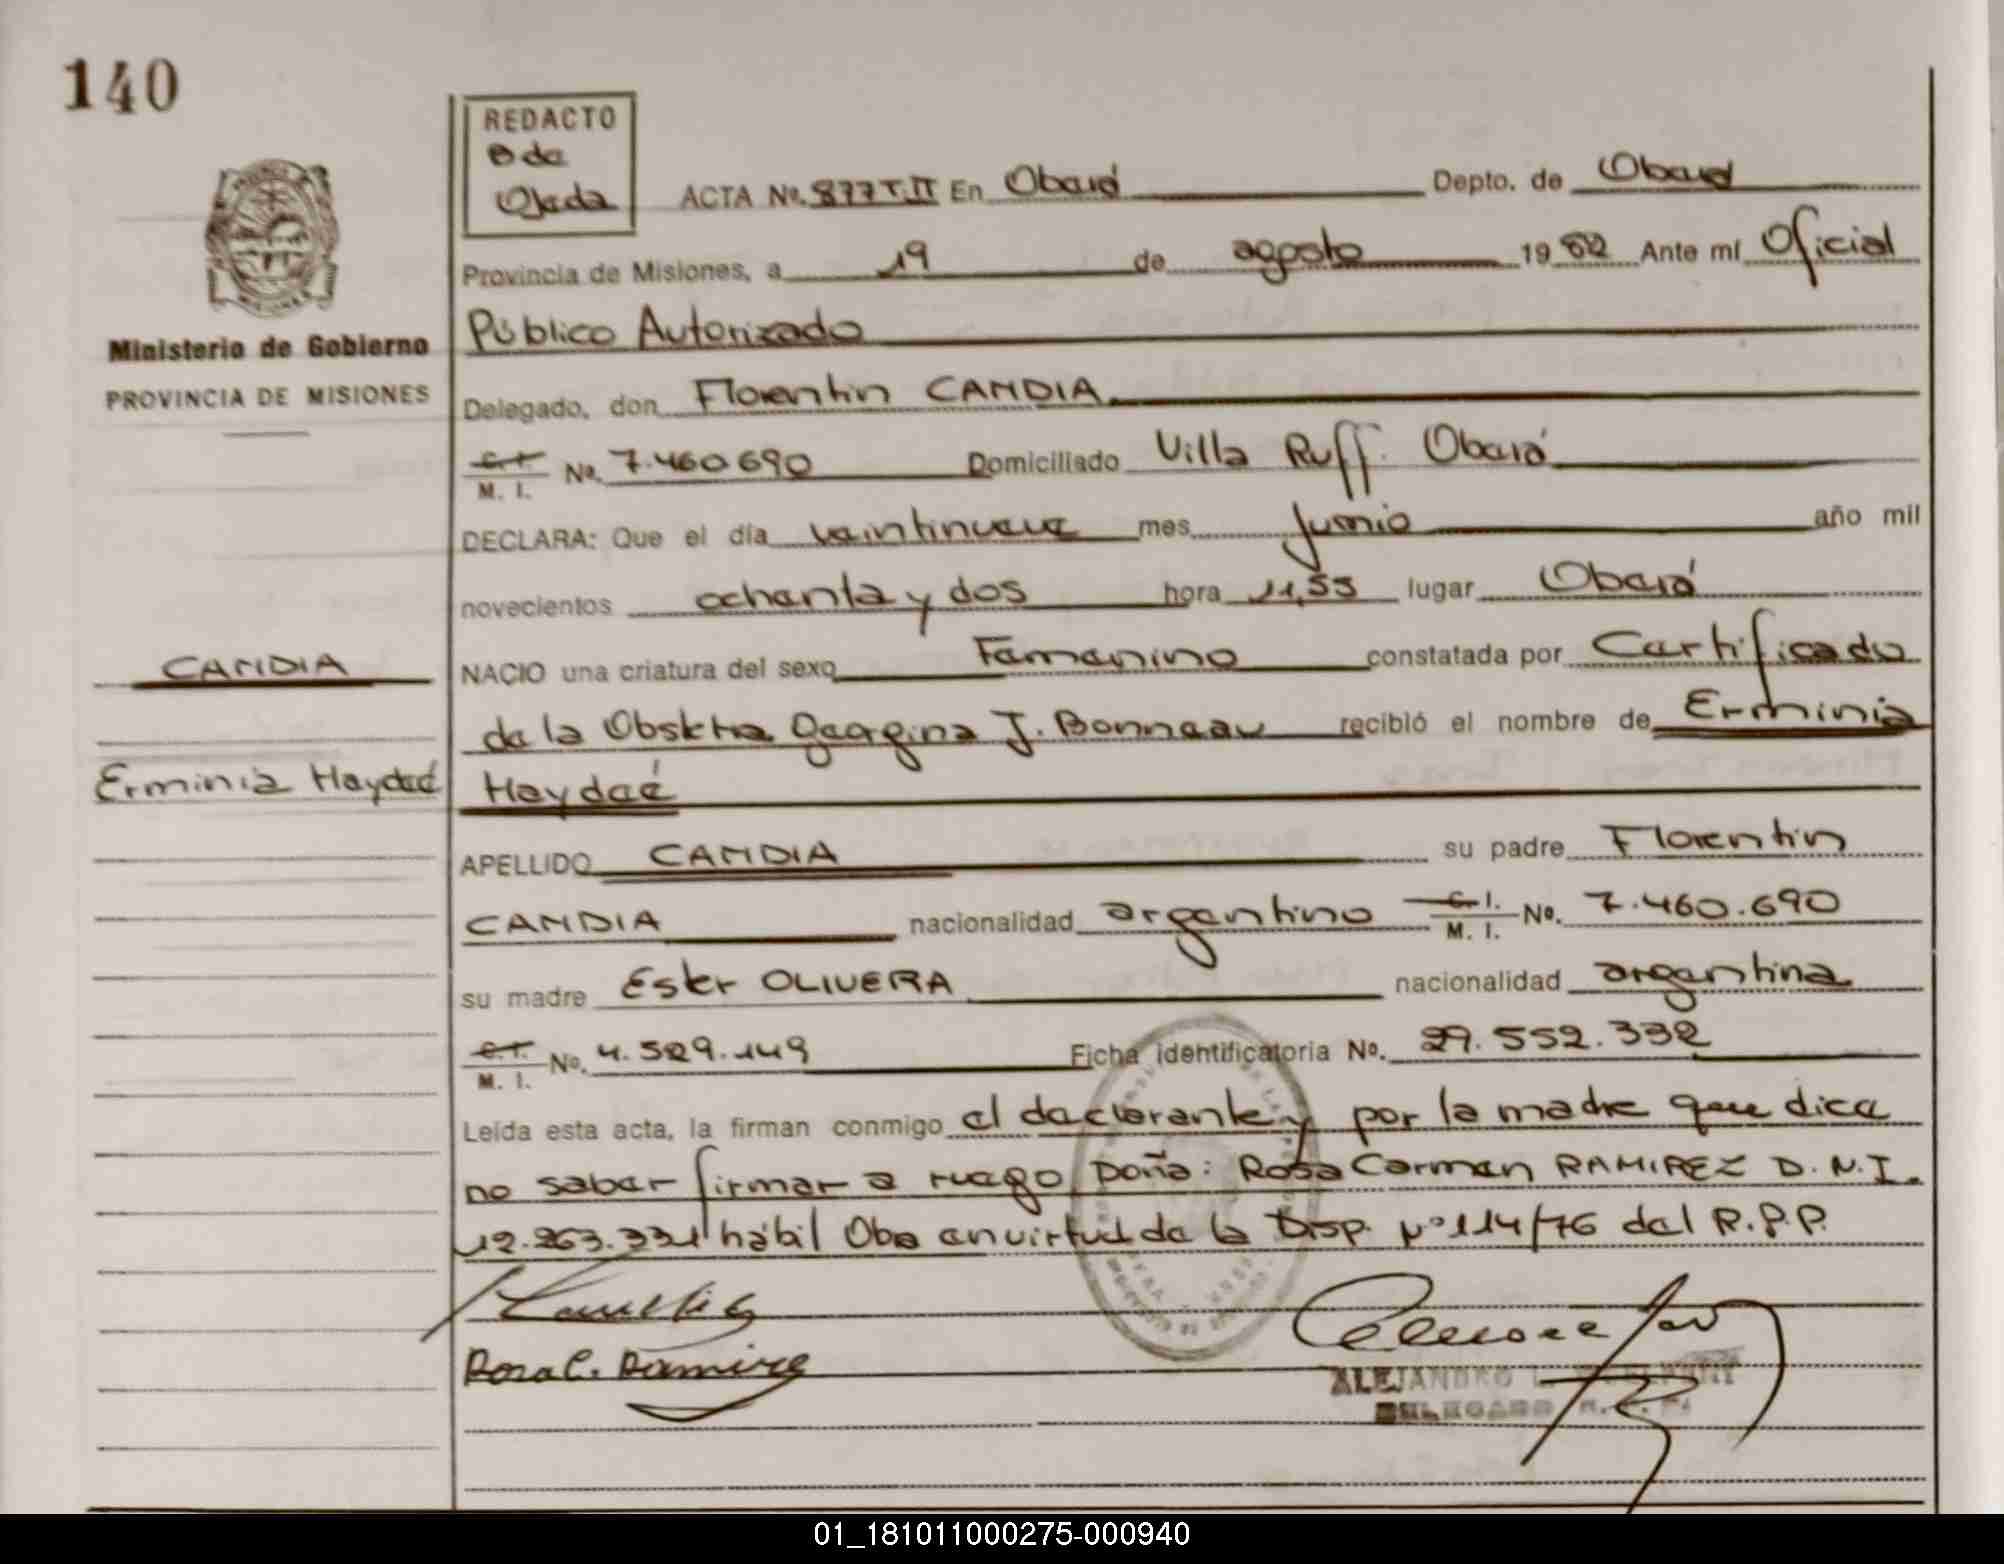 140
REDACTO
B de
Ojeda
ACTA No. 877 T.II En Oberá Depto. de Oberá
Provincia de Misiones, a 19 de agosto 1982 Ante mí Oficial
Público Autorizado
Ministerio de Gobierno
PROVINCIA DE MISIONES
Delegado, don Florentin CANDIA
C.I. M. I. No. 7.460.690 Domiciliado Villa Ruff. Oberá
DECLARA: Que el día veintinueve mes junio año mil
novecientos ochenta y dos hora 11,55 lugar Oberá
CANDIA
NACIO una criatura del sexo Femenino constatada por Certificado
de la Obstetra Georgina J. Bonneau recibió el nombre de Erminia
Erminia Haydeé
Haydeé
APELLIDO CANDIA su padre Florentin
CANDIA nacionalidad argentino C.I. M. I. No. 7.460.690
su madre Ester OLIVERA nacionalidad argentina
C.I. M. I. No. 4.529.149 Ficha identificatoria No. 29.552.332
Leída esta acta, la firman conmigo el declarante y por la madre que dice
no saber firmar a ruego Doña: Rosa Carmen RAMIREZ D.N.I.
12.263.331 hábil Obe en virtud de la Disp. Nº 114/76 del R.P.P.
Rosa C. Ramirez
ALEJANDRO L.
DELEGADO R. P. P.
01_181011000275-000940